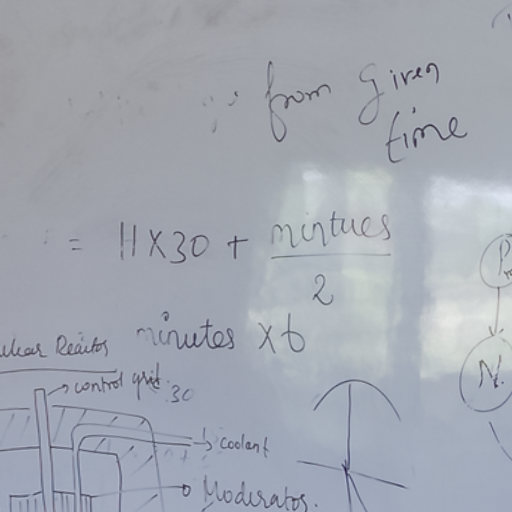 from Given
time
= 11X30 + mintues
2
minutes X6
Reactor
control grid.
30
coolant
Moderator.
N.